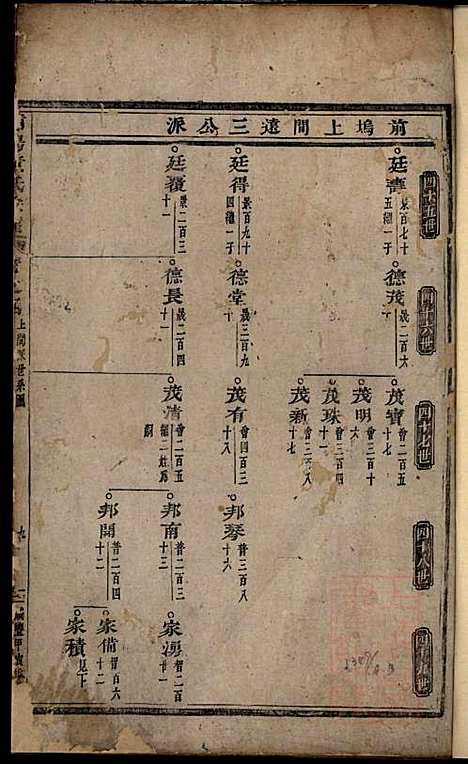 前塢上間遠三公派
四十五世
四十六世
四十七世
四十八世
四十九世
廷壽 景百七十五繼一子
德茂 晟二百六十
茂寶 會二百五十七
茂明 會三百十六
茂珠 會三百四十一
茂新 會三百八十七
廷得 景百九十四繼一子
德堂 晟三百九十
茂有 會四百三十八
邦琴 普三百八十六
景二百三十一
德長 晟二百四十一
茂情 會二百五
邦南 普二百三十三
邦開 普二百四十二
智二百廿一
家備 智百六十二
家積 見下
上間派世系圖
九